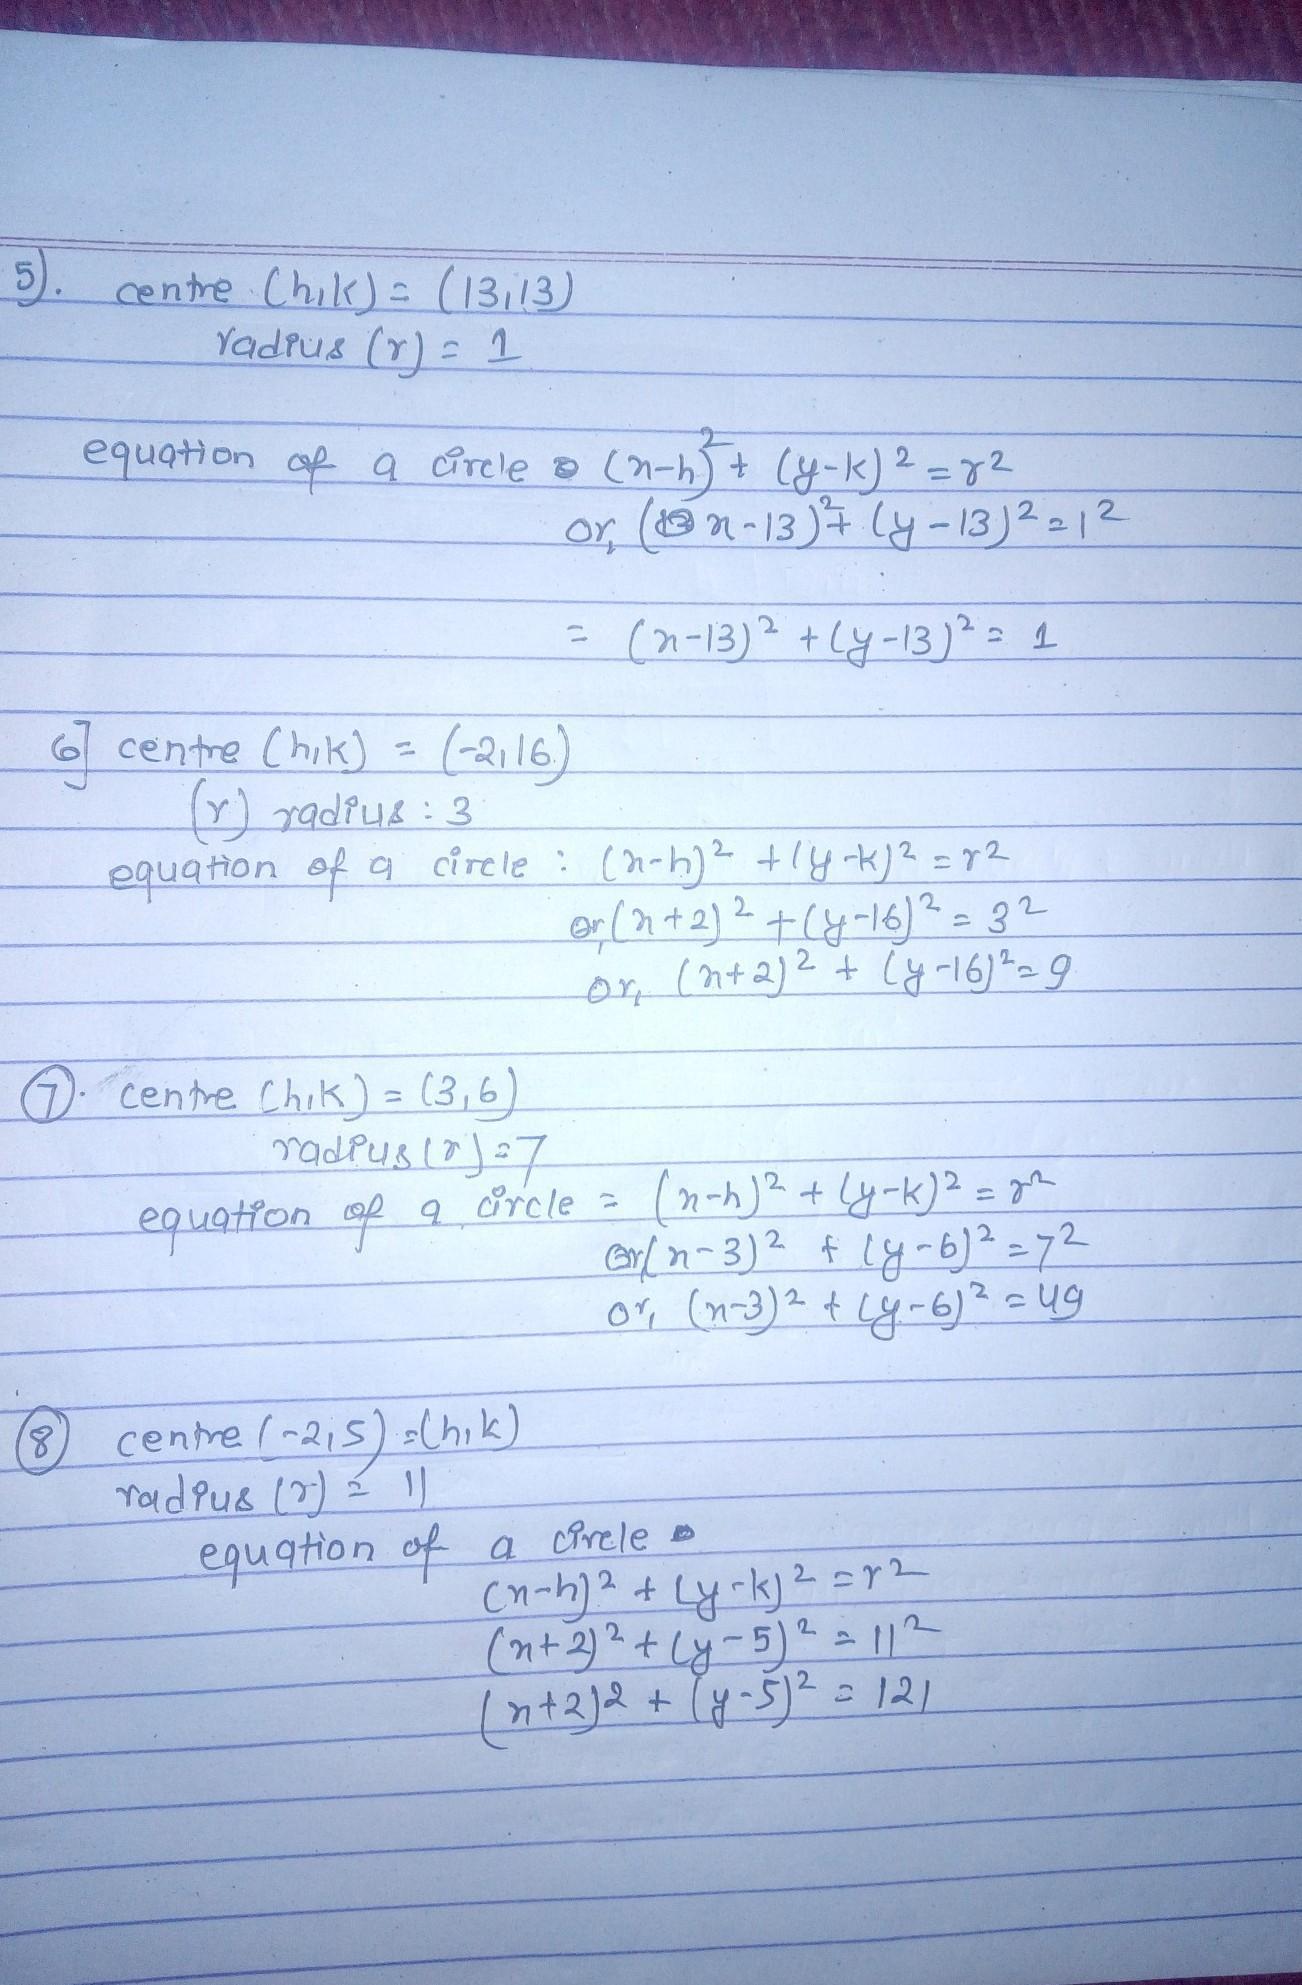 5). centre (h,k) = (13,13)
radius (r) = 1
equation of a circle (x-h)² + (y-k)² = r²
or, (x-13)² + (y-13)² = 1²
= (x-13)² + (y-13)² = 1
6] centre (h,k) = (-2,16)
(r) radius : 3
equation of a circle : (x-h)² + (y-k)² = r²
or, (x+2)² + (y-16)² = 3²
or, (x+2)² + (y-16)² = 9
7. centre (h,k) = (3,6)
radius (r) = 7
equation of a circle = (x-h)² + (y-k)² = r²
or, (x-3)² + (y-6)² = 7²
or, (x-3)² + (y-6)² = 49
8 centre (-2,5) = (h,k)
radius (r) = 11
equation of a circle
(x-h)² + (y-k)² = r²
(x+2)² + (y-5)² = 11²
(x+2)² + (y-5)² = 121